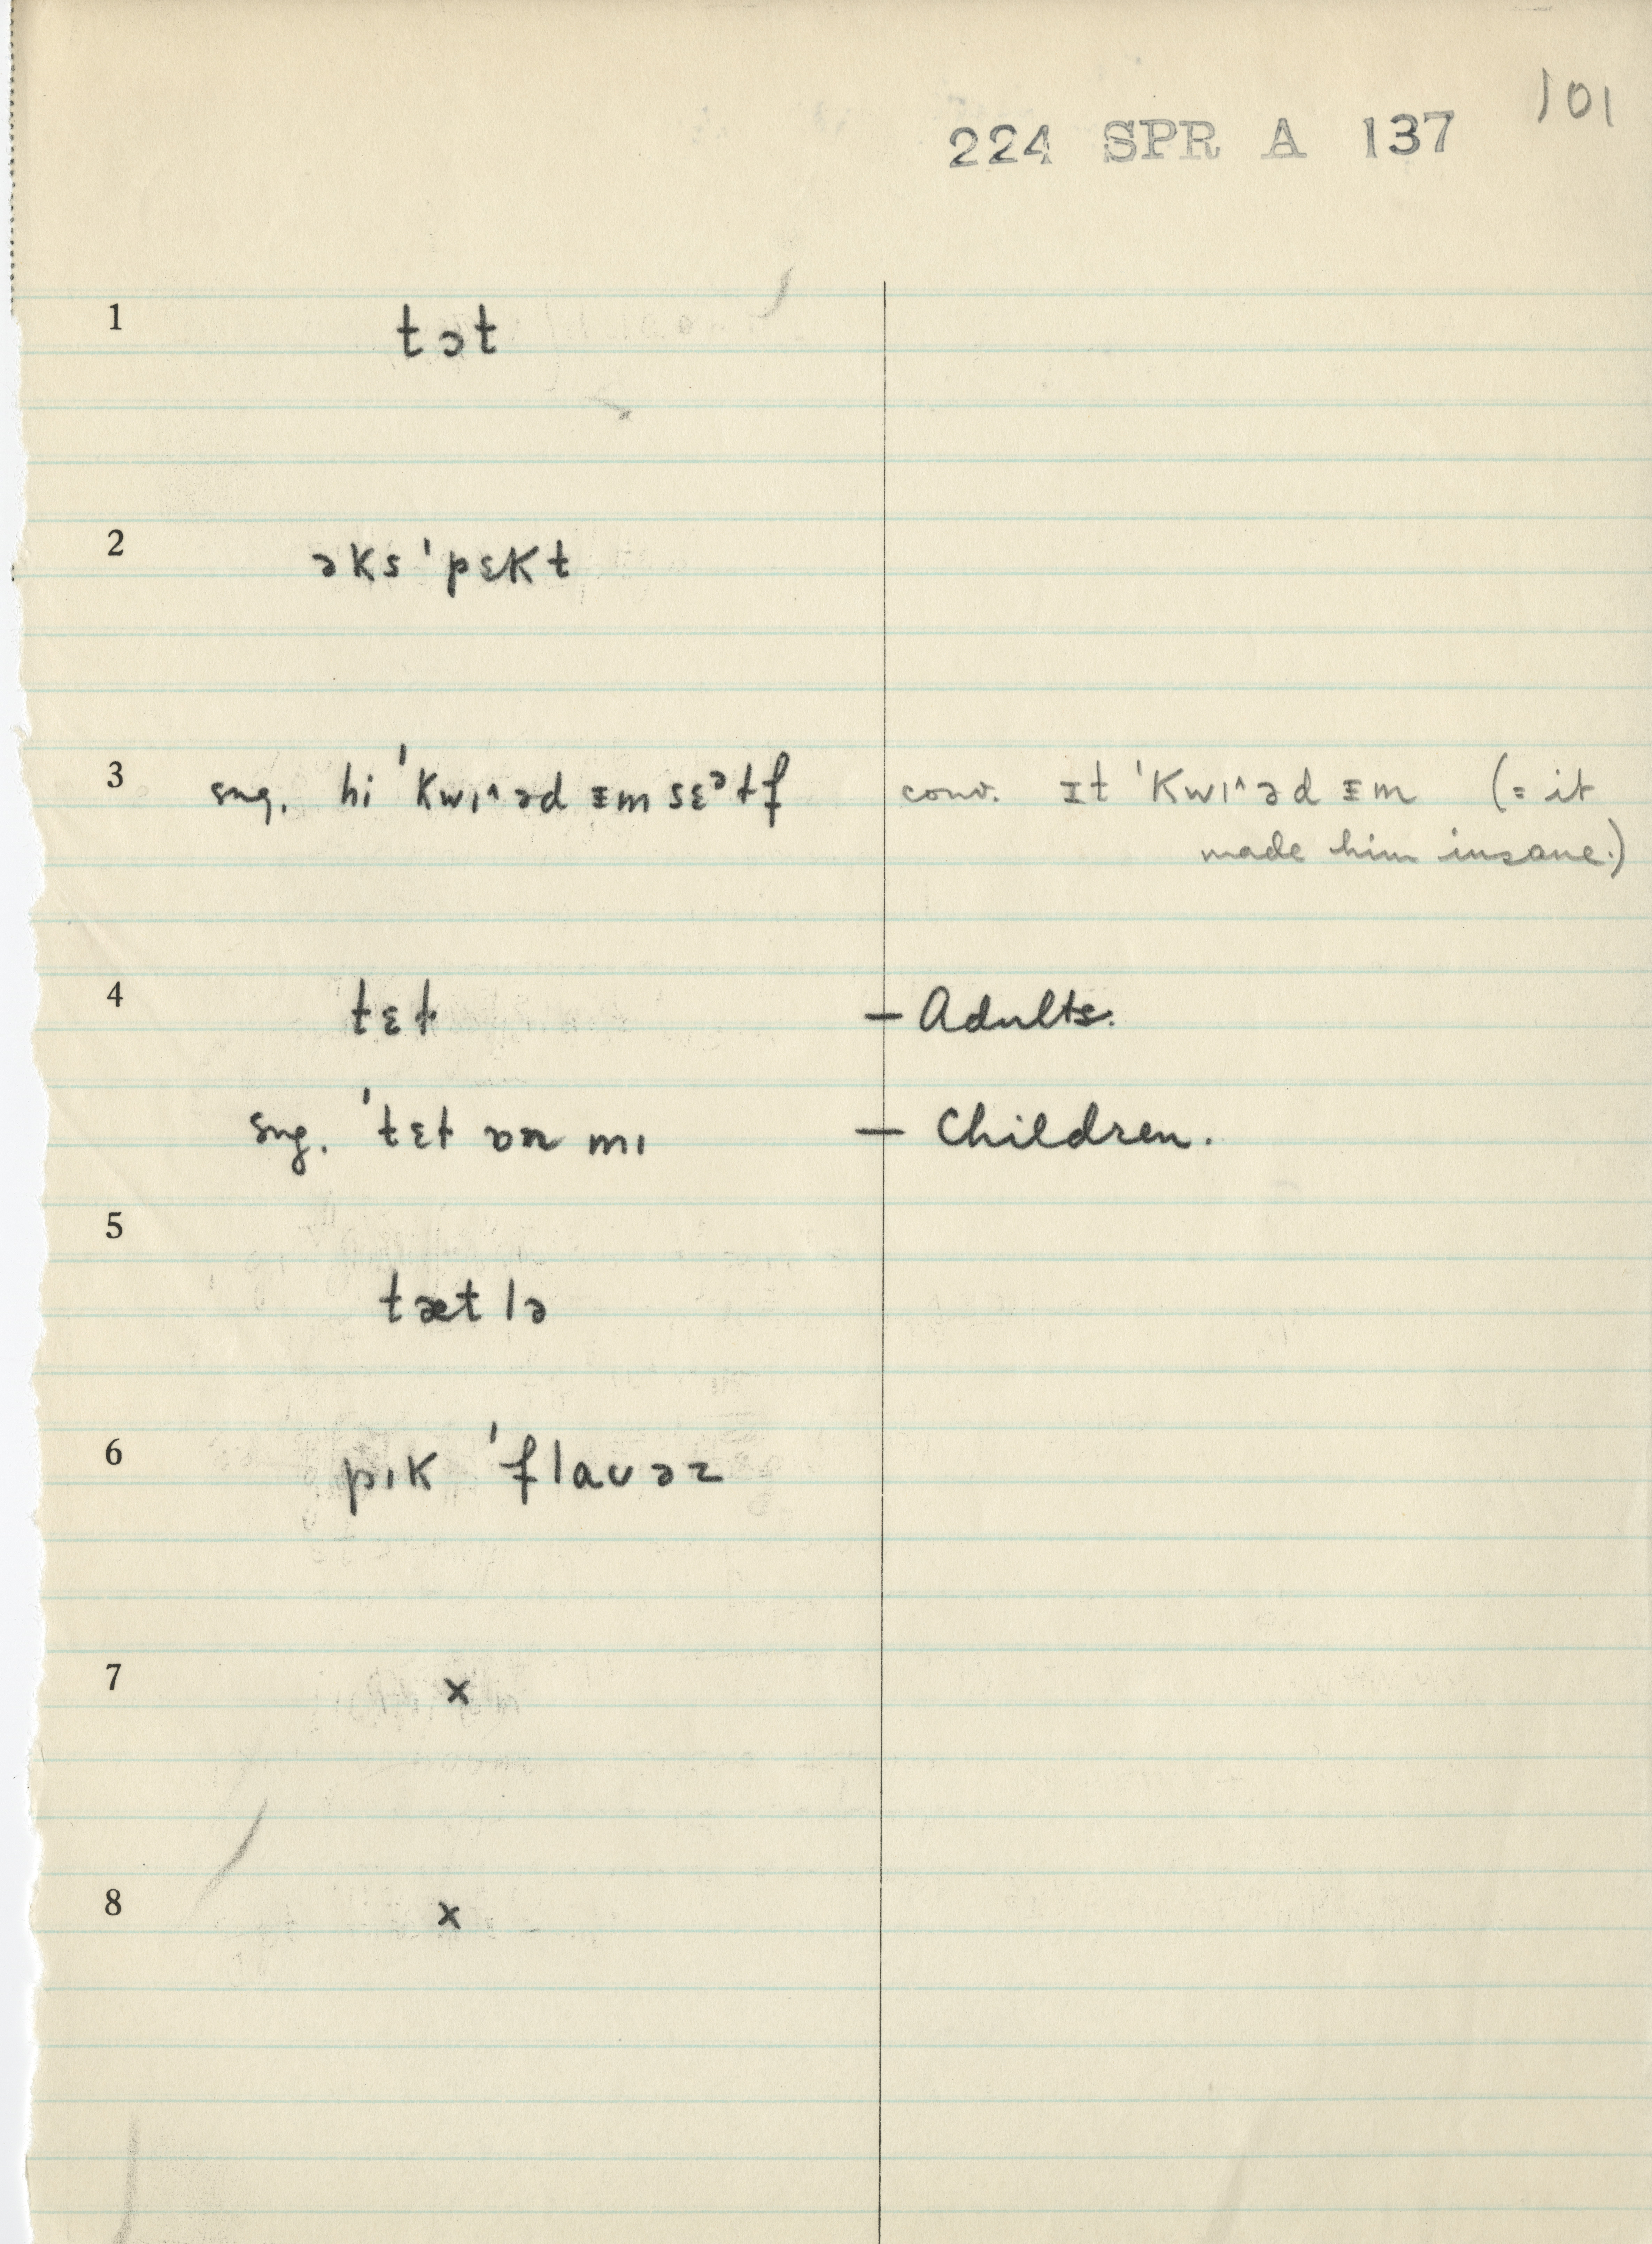 101
224 SPR A 137
1 tɔt
2 əks ˈpɛkt
3 sug. hi ˈkwɪ^əd ɪm sɛᵊtf conv. ɪt ˈkwɪ^əd ɪm (= it
made him insane.)
4 tɛt — Adults.
sug. ˈtɛt ɒn mɪ — Children.
5
tætlə
6 pɪk ˈflaʊəz
7 x
8 x